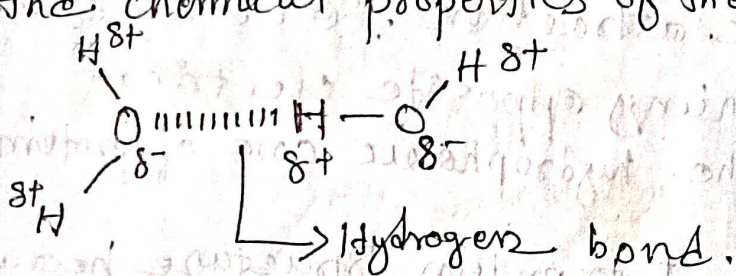 the chemical properties of the
H δ+
H δ+
O ıııııııııı H — O
δ- δ+ δ-
δ+ H
→ Hydrogen bond.